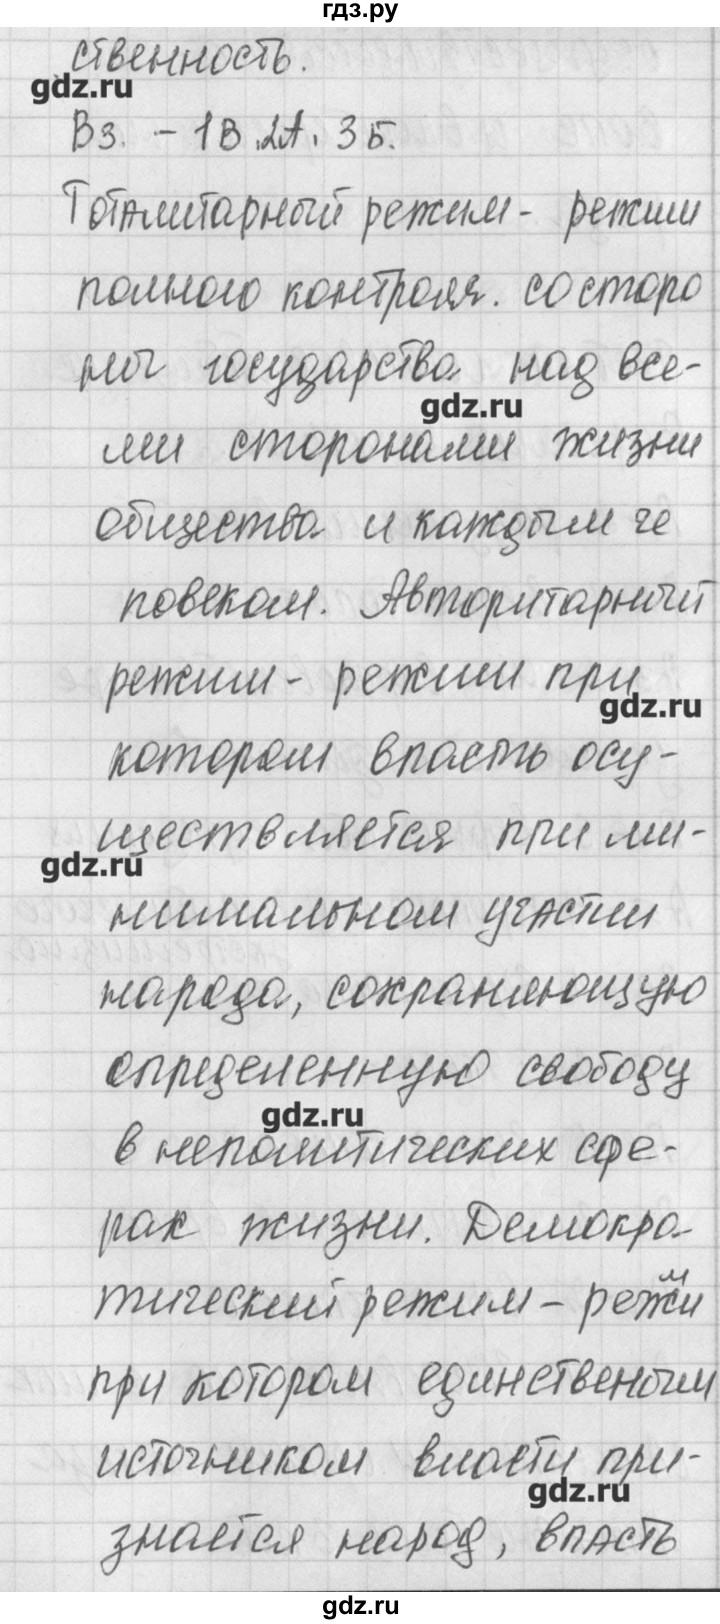 гдз.ру
ственность.
gdz.ru
В3. - 1В. 2А. 3Б.
Тоталитарный режим - режим
полного контроля. со сторо
ны государства над все-
gdz.ru
ми сторонами жизни
общества и каждым че
ловеком. Авторитарный
режим - режим при
gdz.ru
котором власть осу-
ществляется при ми-
gdz.ru
нимальном участии
народа, сохраняющую
определенную свободу
gdz.ru
в неполитических сфе-
рах жизни. Демокра-
тический режим - режим
при котором единственым
источником власти при-
gdz.ru
знается народ, власть
gdz.ru